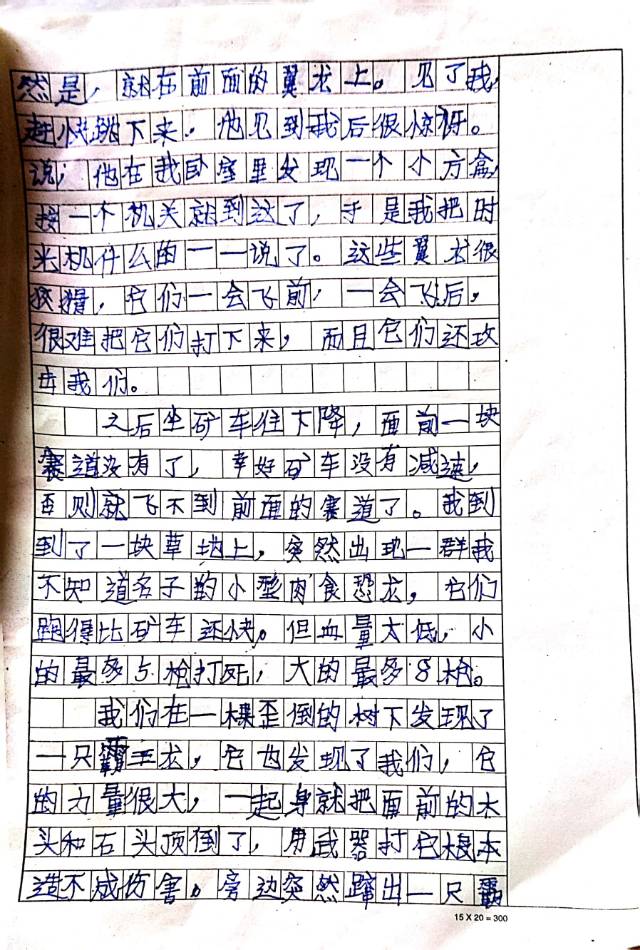 然是，就在前面的翼龙上。见了我，
赶快跳下来，他见到我后很惊讶。
说：他在我卧室里发现一个小方盒，
按一个机关就到这了，于是我把时
光机什么的一一说了。这些翼龙很
狡猾，它们一会飞前，一会飞后，
很难把它们打下来，而且它们还攻
击我们。
之后坐矿车往下降，面前一块
赛道没有了，幸好矿车没有减速，
否则就飞不到前面的赛道了。我到
到了一块草地上，突然出现一群我
不知道名子的小型肉食恐龙，它们
跑得比矿车还快。但血量太低，小
的最多5枪打死，大的最多8枪。
我们在一棵歪倒的树下发现了
一只霸王龙，它也发现了我们，它
的力量很大，一起身就把面前的木
头和石头顶倒了，用武器打它根本
造不成伤害。旁边突然蹿出一只霸
15 X 20 = 300